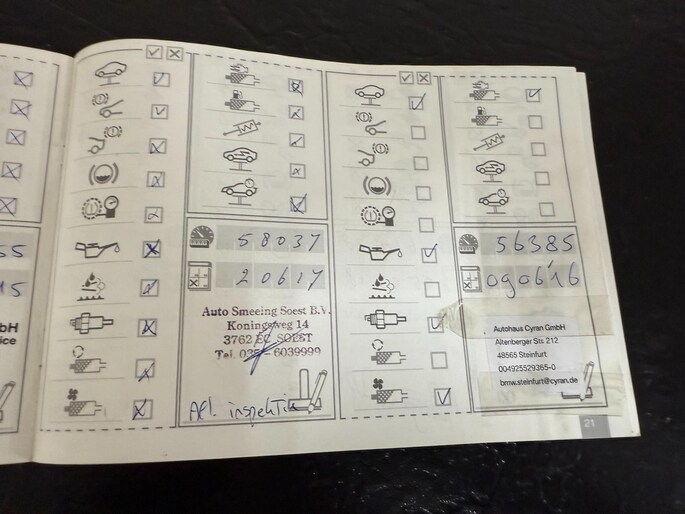 55
15
bH
ice
58037
20617
Auto Smeeing Soest B.V.
Koningsweg 14
3762 EC SOEST
Tel. 035 - 6039999
Afl. inspektie
56385
090616
Autohaus Cyran GmbH
Altenberger Sts 212
48565 Steinfurt
004925529385-0
bmw.steinfurt@cyran.de
21